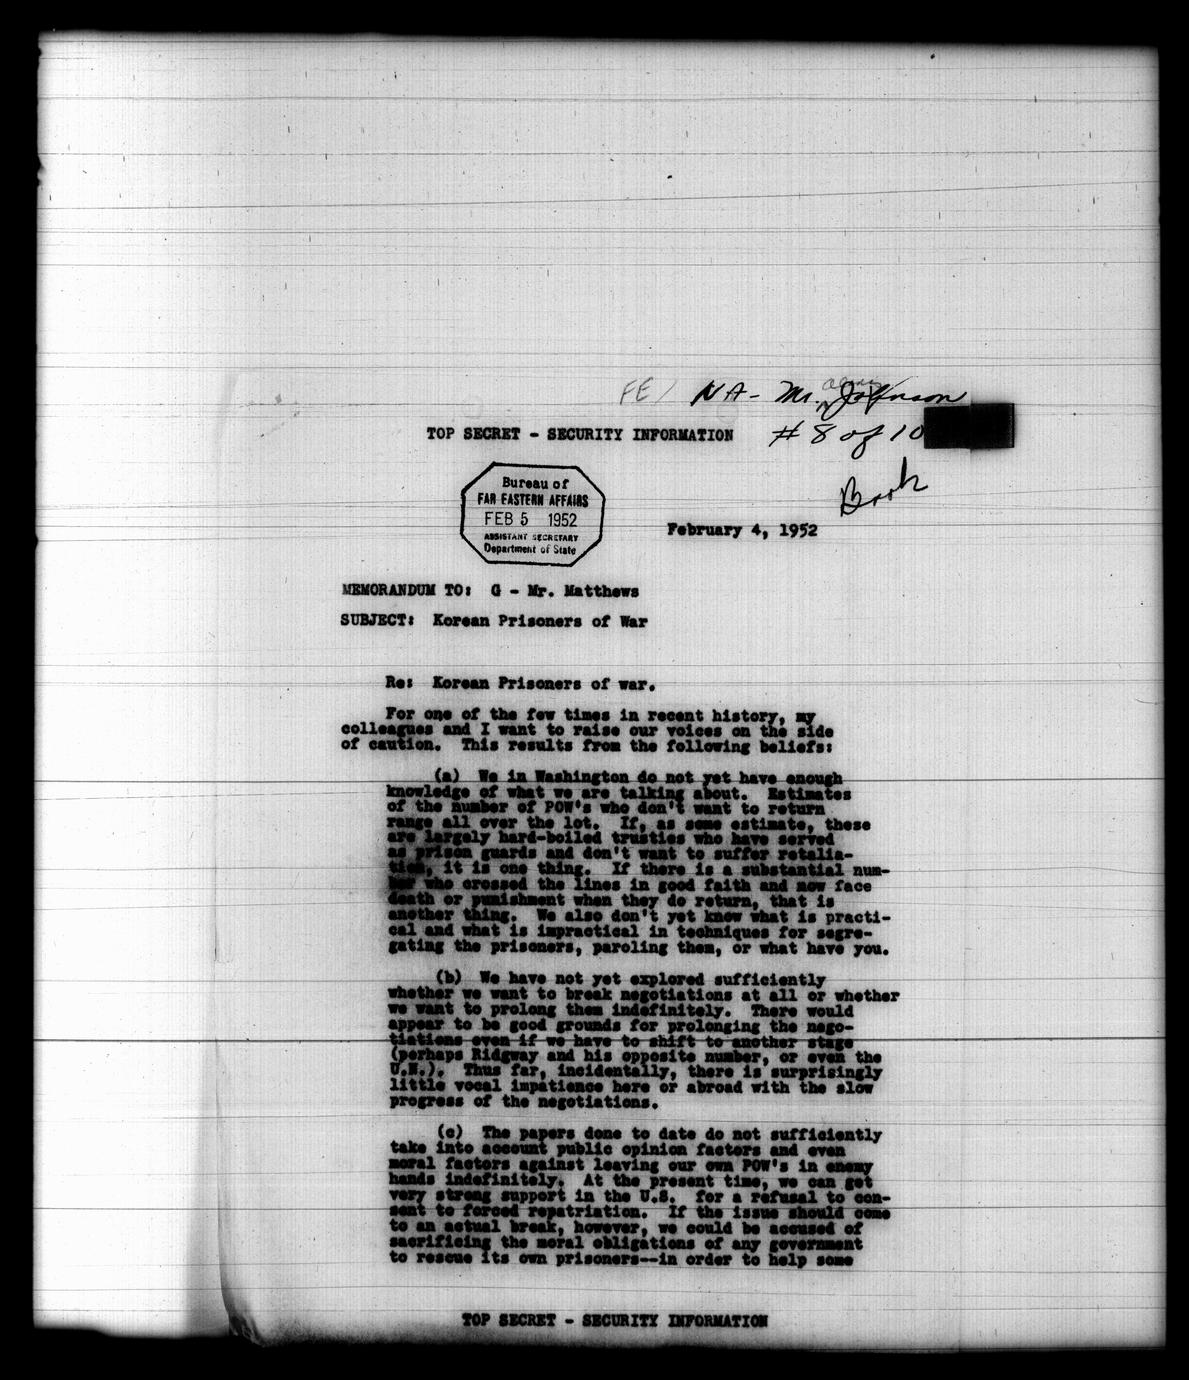 FE/ NA - Mr. Johnson
TOP SECRET - SECURITY INFORMATION # 8 of 10
Bureau of
FAR EASTERN AFFAIRS
FEB 5 1952
ASSISTANT SECRETARY
Department of State
February 4, 1952
MEMORANDUM TO: G - Mr. Matthews
SUBJECT: Korean Prisoners of War
Re: Korean Prisoners of war.
For one of the few times in recent history, my
colleagues and I want to raise our voices on the side
of caution. This results from the following beliefs:
(a) We in Washington do not yet have enough
knowledge of what we are talking about. Estimates
of the number of POW's who don't want to return
range all over the lot. If, as some estimate, these
are largely hard-boiled trusties who have served
as prison guards and don't want to suffer retalia-
tion, it is one thing. If there is a substantial num-
ber who crossed the lines in good faith and now face
death or punishment when they do return, that is
another thing. We also don't yet know what is practi-
cal and what is impractical in techniques for segre-
gating the prisoners, paroling them, or what have you.
(b) We have not yet explored sufficiently
whether we want to break negotiations at all or whether
we want to prolong them indefinitely. There would
appear to be good grounds for prolonging the nego-
tiations even if we have to shift to another stage
(perhaps Ridgway and his opposite number, or even the
U.N.). Thus far, incidentally, there is surprisingly
little vocal impatience here or abroad with the slow
progress of the negotiations.
(c) The papers done to date do not sufficiently
take into account public opinion factors and even
moral factors against leaving our own POW's in enemy
hands indefinitely. At the present time, we can get
very strong support in the U.S. for a refusal to con-
sent to forced repatriation. If the issue should come
to an actual break, however, we could be accused of
sacrificing the moral obligations of any government
to rescue its own prisoners--in order to help some
TOP SECRET - SECURITY INFORMATION